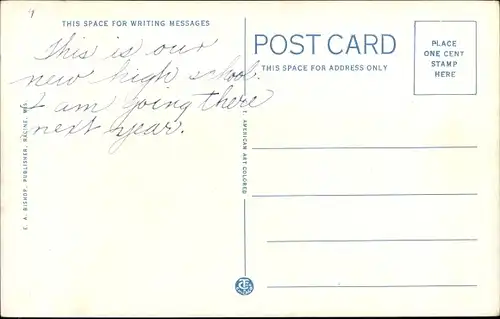 THIS SPACE FOR WRITING MESSAGES
This is our
new high school.
I am going there
next year.
E. A. BISHOP, PUBLISHER, RACINE, WIS.
C. T. AMERICAN ART COLORED
POST CARD
THIS SPACE FOR ADDRESS ONLY
PLACE
ONE CENT
STAMP
HERE